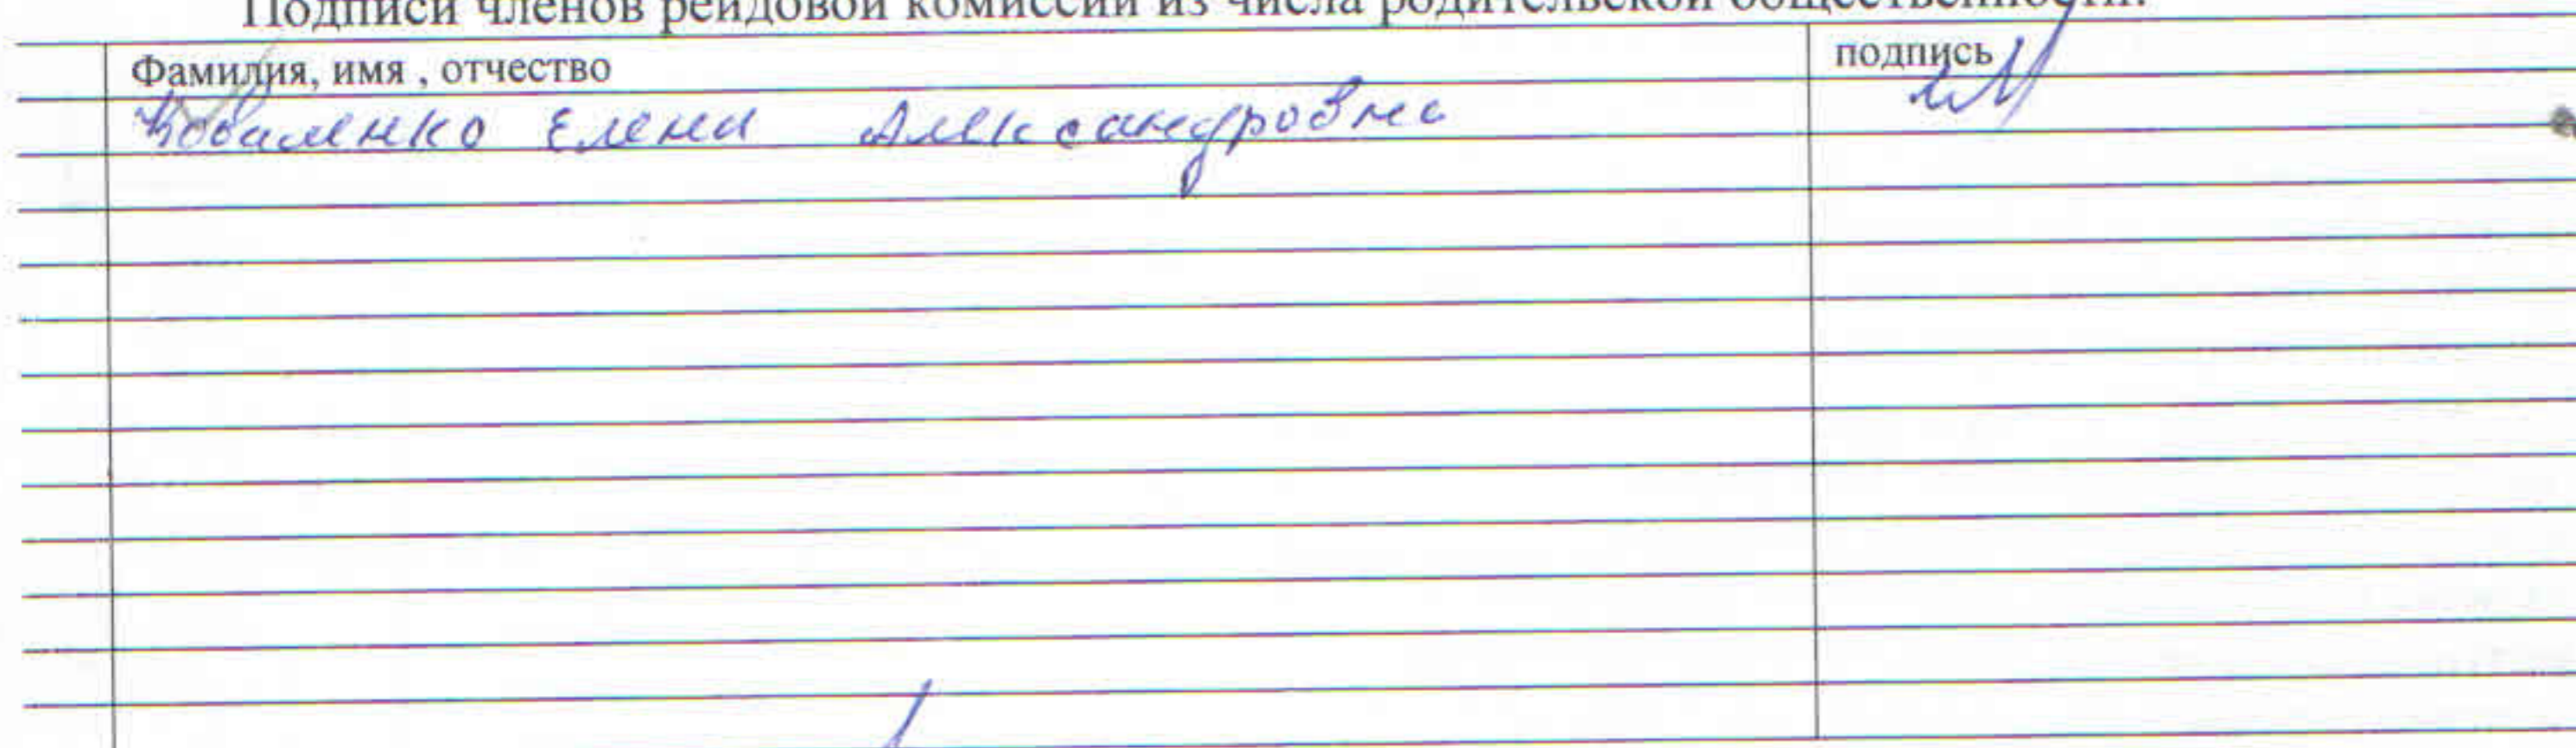 Подписи членов рейдовой комиссии из числа родительской общественности:
Фамилия, имя , отчество подпись
Коваленко Елена Александровна